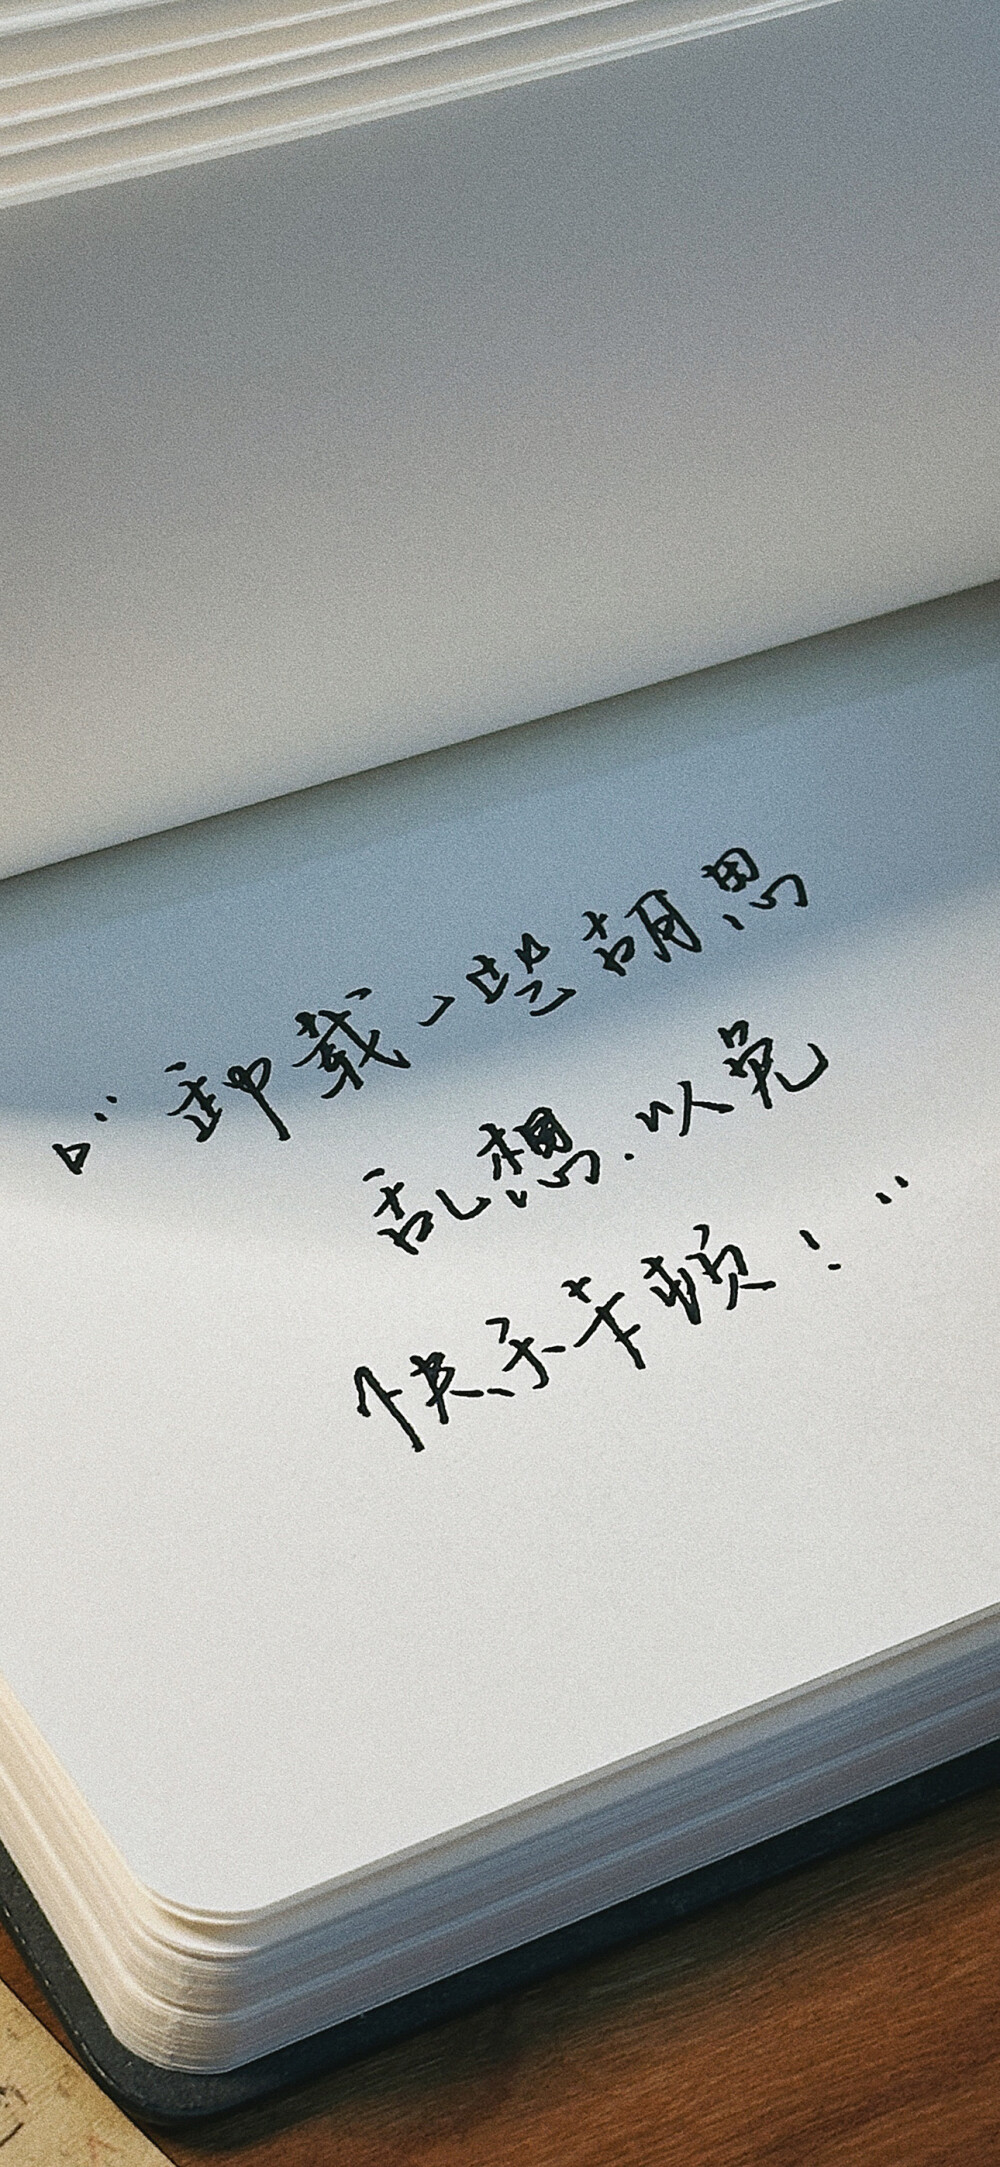 “卸载一些胡思
乱想.以免
快乐卡顿！”